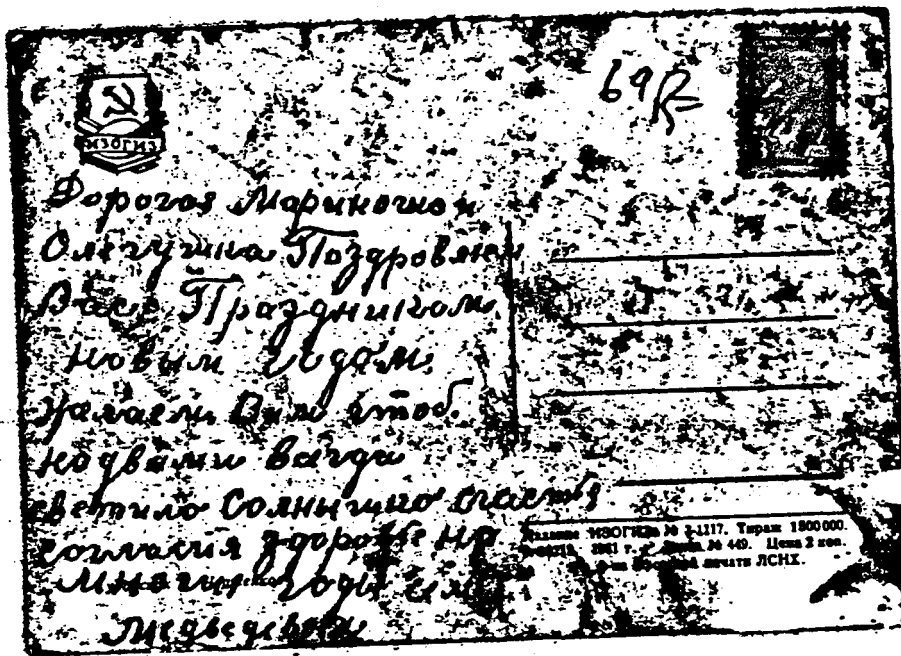 ИЗОГИЗ
69
Дорогая Мариночка и
Олегушка Поздравляем
Вас Праздником
новым годом,
желаем Вам чтоб.
надвами всегда
светило Солнышко счастья
согласия здоровье на
многие годы
Медведевы
Издание ИЗОГИЗа № 3-1117. Тираж 1800000.
1961 г. № 449. Цена 3 коп.
печати ЛСНХ.